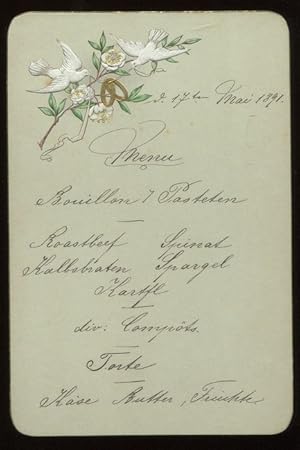 d. 17ten Mai 1891.
Menu
Bouillon / Pasteten
Roastbeef Spinat
Kalbsbraten Spargel
Kartfl
div: Compôts.
Torte
Käse Butter, Früchte